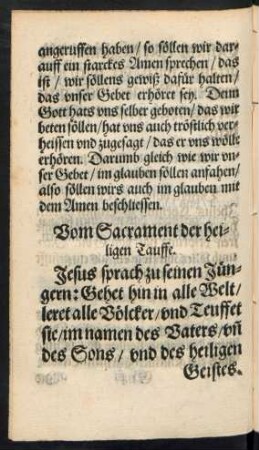 angeruffen haben/ so söllen wir dar-
auff ein starckes Amen sprechen/ das
ist/ wir söllens gewiß dafür halten/
das vnser Gebet erhöret sey. Denn
Gott hats vns selber geboten/ das wir
beten söllen/ hat vns auch tröstlich ver-
heissen vnd zugesagt/ das er vns wölle
erhören. Darumb gleich wie wir vn-
ser Gebet/ im glauben söllen anfahen/
also söllen wirs auch im glauben mit
dem Amen beschliessen.
Vom Sacrament der hei-
ligen Tauffe.
Jesus sprach zu seinen Jün-
gern: Gehet hin in alle Welt/
leret alle Völcker/ vnd Teuffet
sie/ im namen des Vaters/ vñ
des Sons/ vnd des heiligen
Geistes.